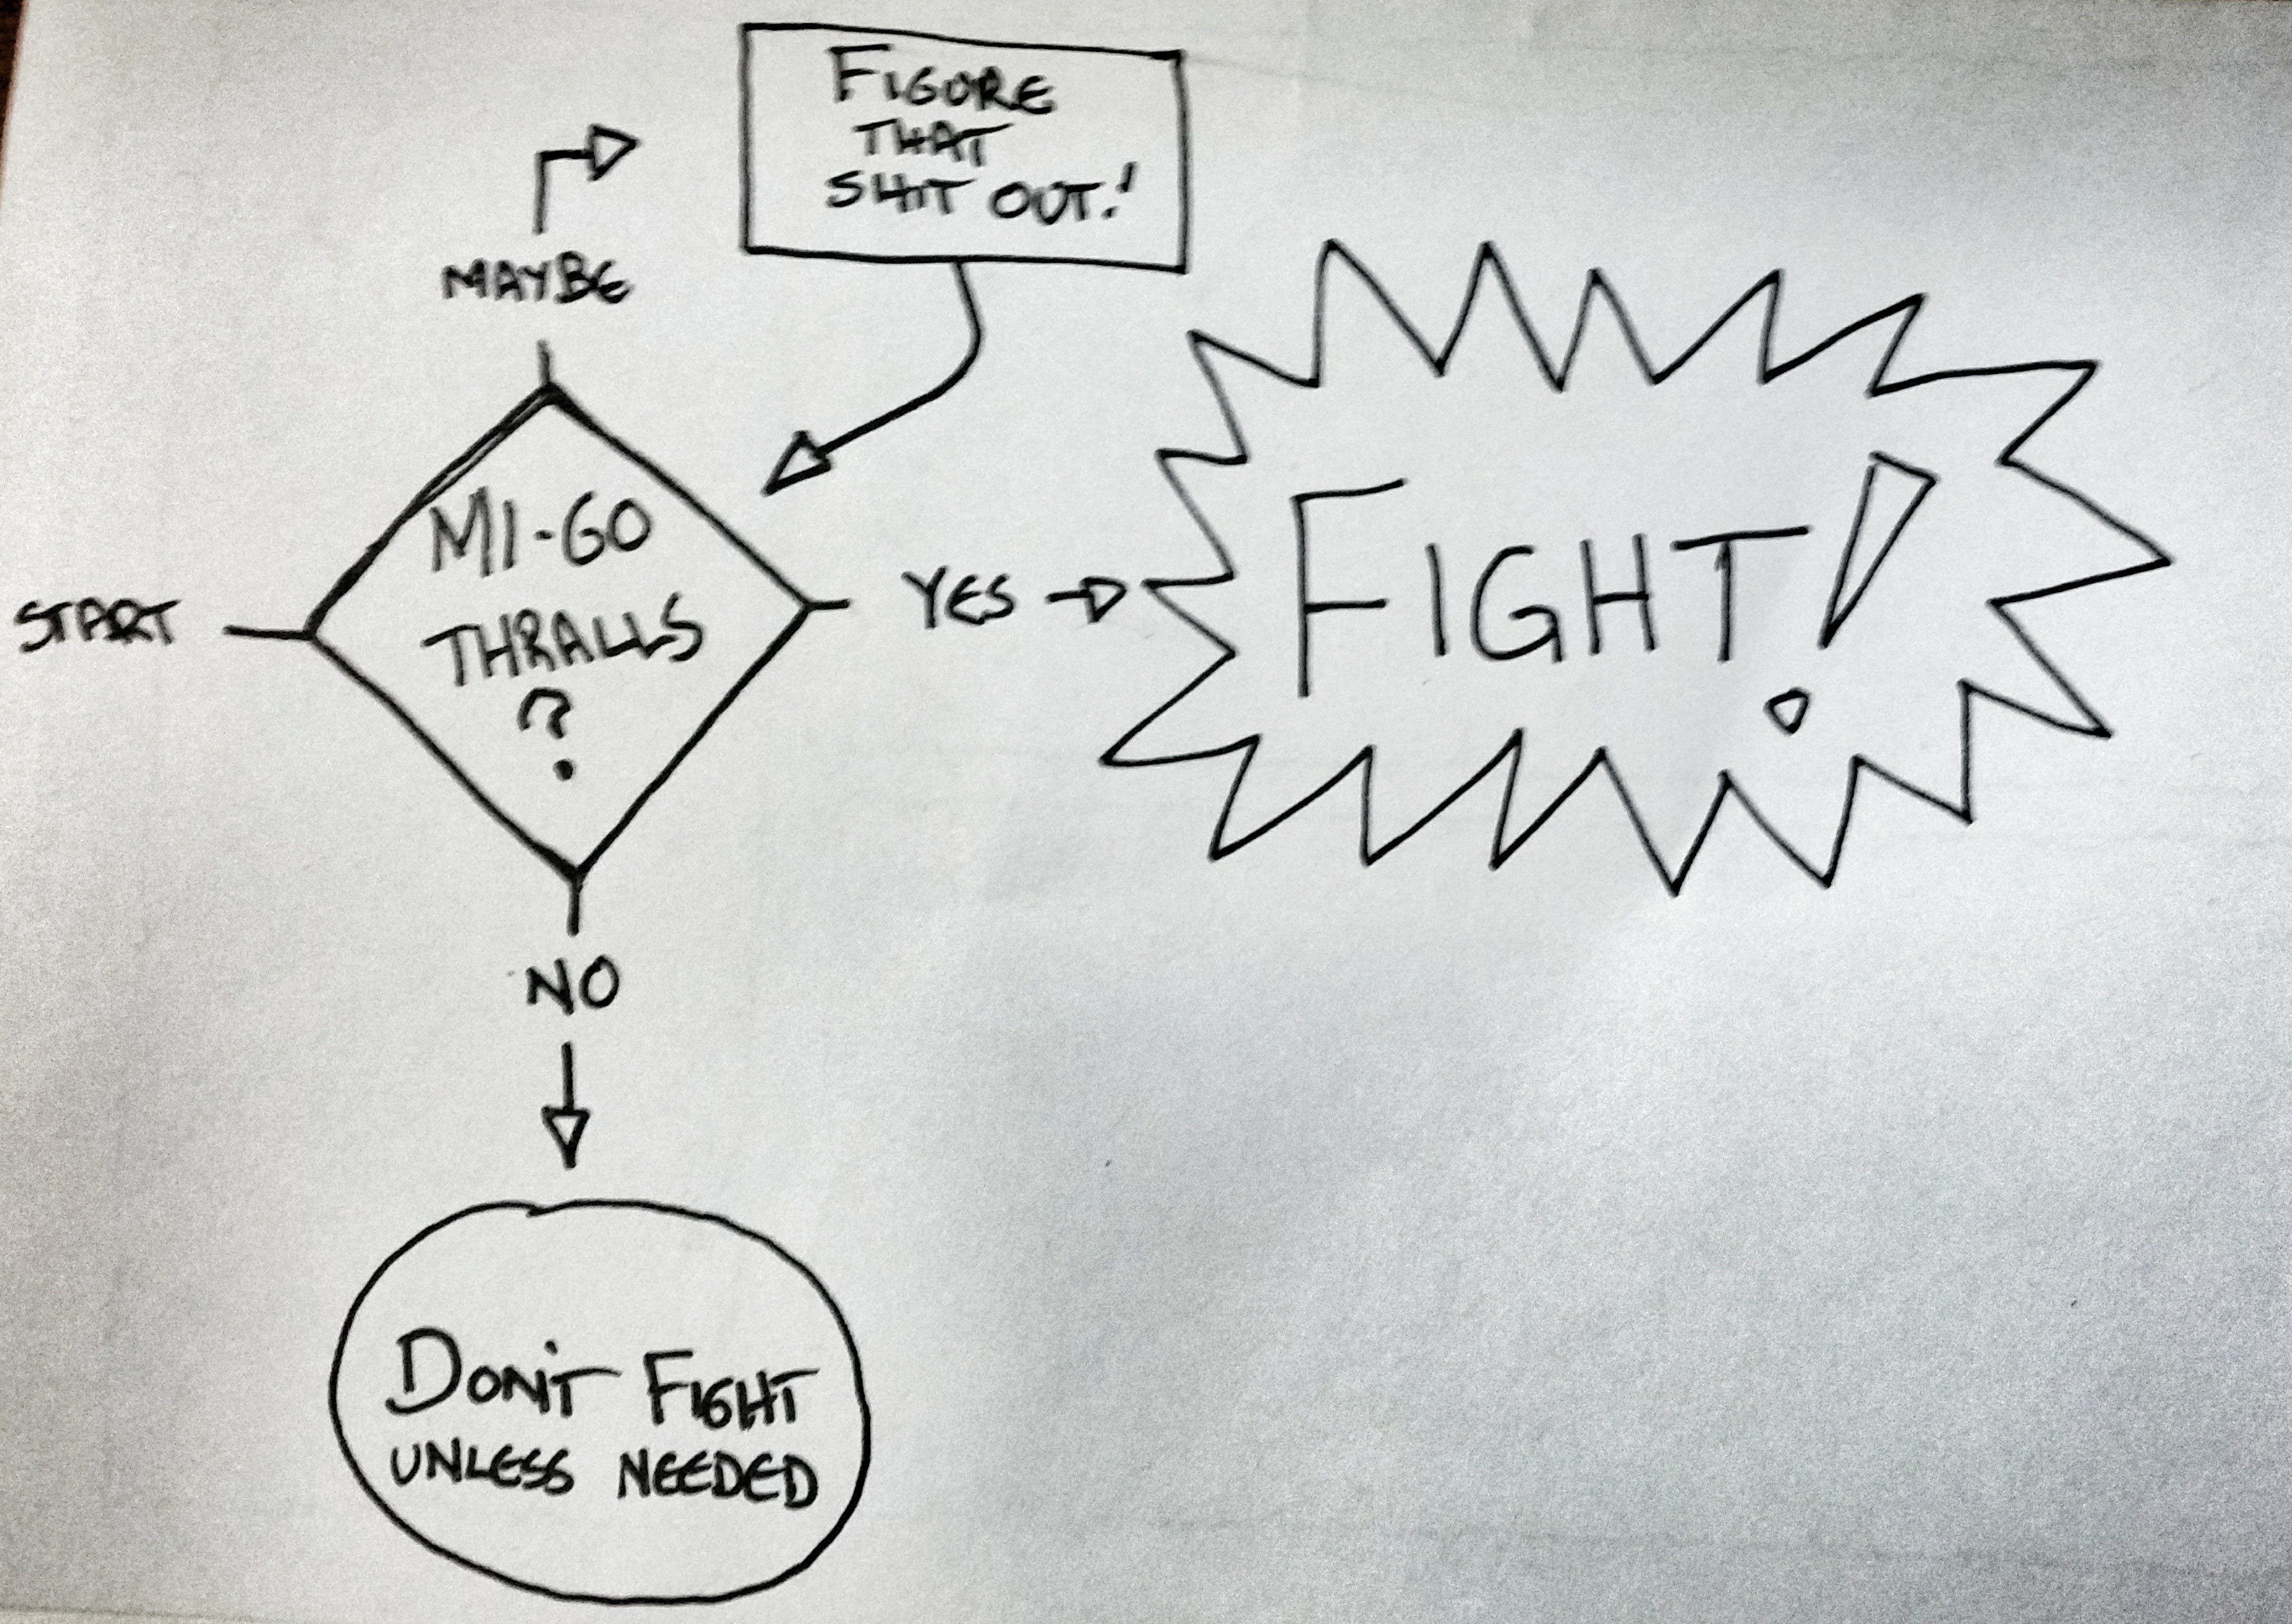 FIGURE
THAT
SHIT OUT!
MAYBE
START
MI-GO
THRALLS
?
YES
FIGHT!
NO
DON'T FIGHT
UNLESS NEEDED